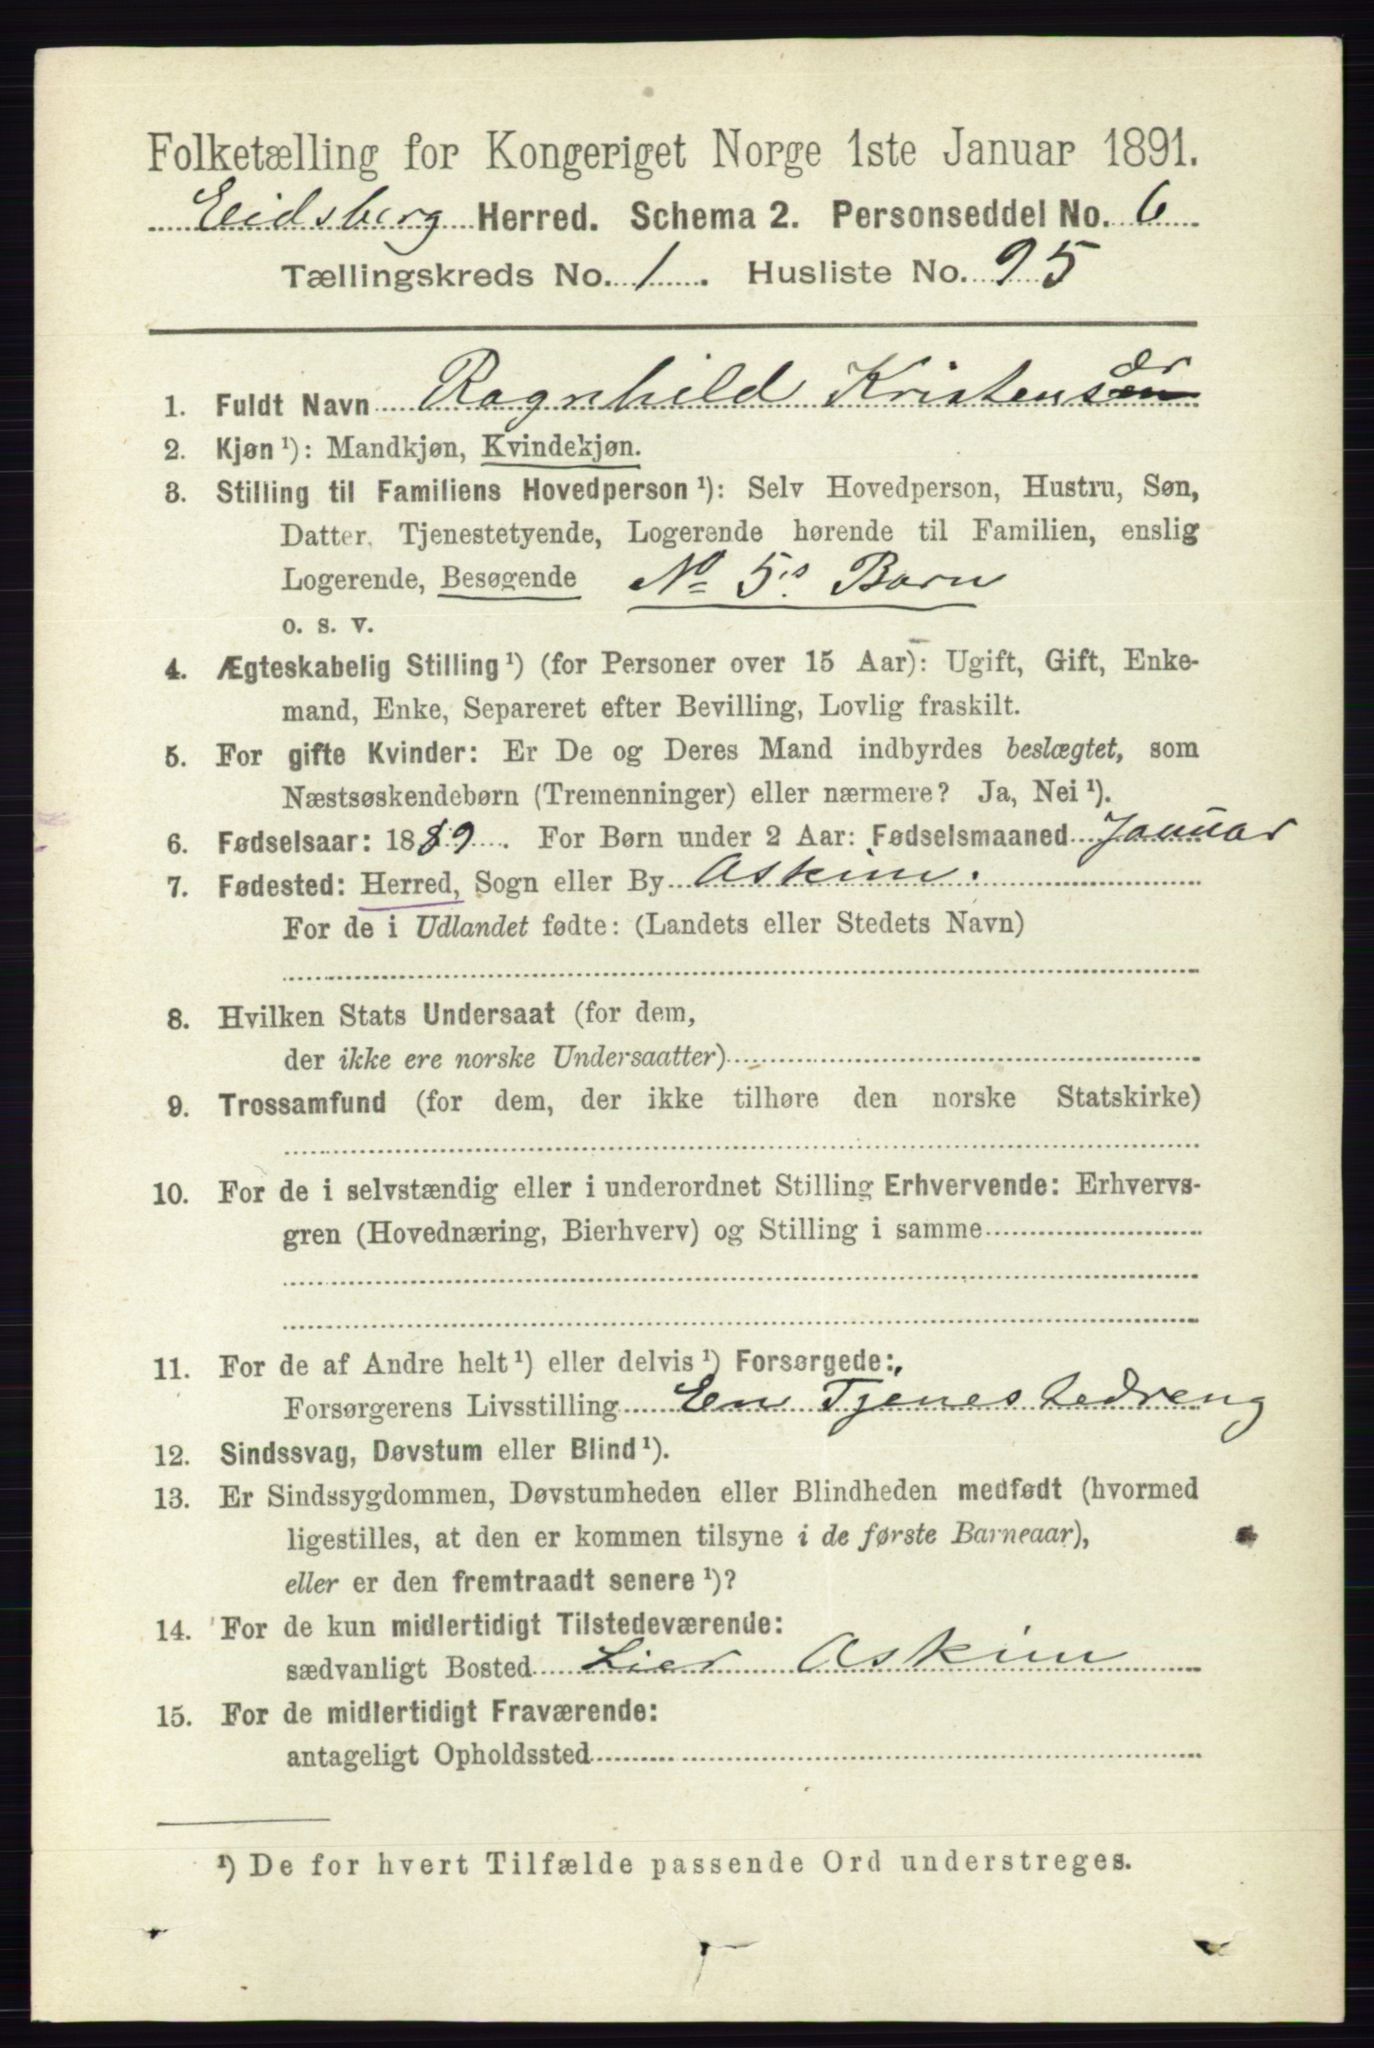 Folketælling for Kongeriget Norge 1ste Januar 1891.
Eidsberg Herred. Schema 2. Personseddel No. 6
Tællingskreds No. 1. Husliste No. 95
1. Fuldt Navn Ragnhild Kristensen dr
2. Kjøn ¹): Mandkjøn, Kvindekjøn.
3. Stilling til Familiens Hovedperson ¹): Selv Hovedperson, Hustru, Søn,
Datter, Tjenestetyende, Logerende hørende til Familien, enslig
Logerende, Besøgende No 5's Barn
o. s. v.
4. Ægteskabelig Stilling ¹) (for Personer over 15 Aar): Ugift, Gift, Enke-
mand, Enke, Separeret efter Bevilling, Lovlig fraskilt.
5. For gifte Kvinder: Er De og Deres Mand indbyrdes beslægtet, som
Næstsøskendebørn (Tremenninger) eller nærmere? Ja, Nei ¹).
6. Fødselsaar: 1889. For Børn under 2 Aar: Fødselsmaaned Januar
7. Fødested: Herred, Sogn eller By Askim.
For de i Udlandet fødte: (Landets eller Stedets Navn)
8. Hvilken Stats Undersaat (for dem,
der ikke ere norske Undersaatter)
9. Trossamfund (for dem, der ikke tilhøre den norske Statskirke)
10. For de i selvstændig eller i underordnet Stilling Erhvervende: Erhvervs-
gren (Hovednæring, Bierhverv) og Stilling i samme
11. For de af Andre helt ¹) eller delvis ¹) Forsørgede:
Forsørgerens Livsstilling En Tjenestedreng
12. Sindssvag, Døvstum eller Blind ¹).
13. Er Sindssygdommen, Døvstumheden eller Blindheden medfødt (hvormed
ligestilles, at den er kommen tilsyne i de første Barneaar),
eller er den fremtraadt senere ¹)?
14. For de kun midlertidigt Tilstedeværende:
sædvanligt Bosted Lier Askim
15. For de midlertidigt Fraværende:
antageligt Opholdssted
¹) De for hvert Tilfælde passende Ord understreges.